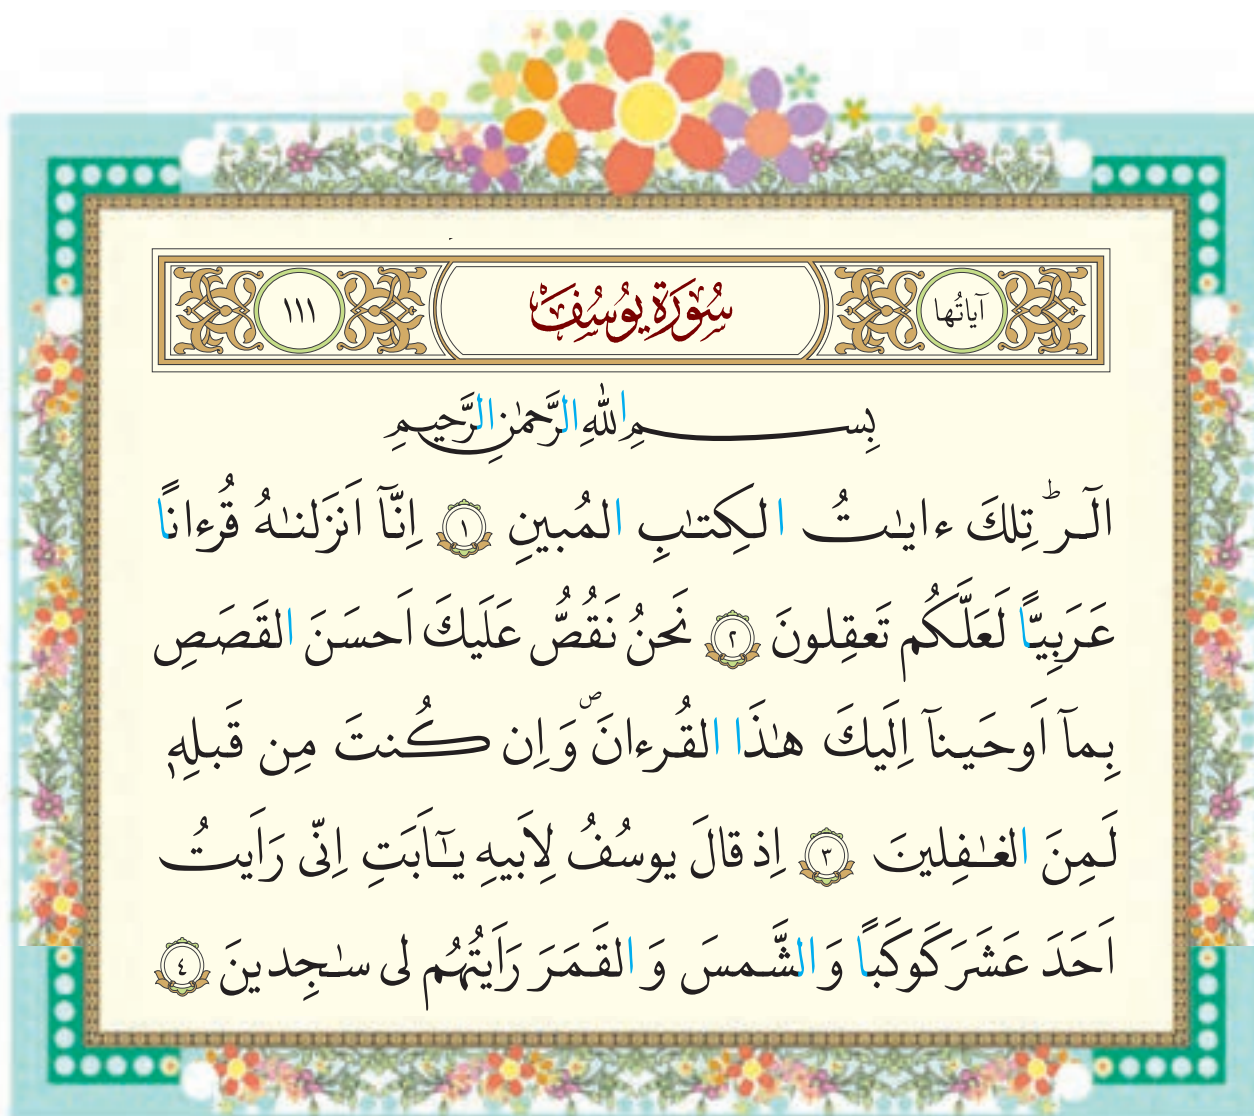 آیاتُها سُوْرَةُ يُوسُفَ ١١١
بِسـمِ اللّٰهِ الرَّحمٰنِ الرَّحيمِ
الٓـرٰ ۚ تِلكَ ءايـٰتُ الكِتـٰبِ المُبينِ ١ اِنّآ اَنزَلنـٰهُ قُرءانًا
عَرَبِيًّا لَعَلَّكُم تَعقِلونَ ٢ نَحنُ نَقُصُّ عَلَيكَ اَحسَنَ القَصَصِ
بِمآ اَوحَينآ اِلَيكَ هـٰذَا القُرءانَ ۖ وَ اِن كُنتَ مِن قَبلِهٖ
لَمِنَ الغـٰفِلينَ ٣ اِذ قالَ يوسُفُ لِاَبيهِ يـٰٓاَبَتِ اِنّى رَاَيتُ
اَحَدَ عَشَرَ كَوكَبًا وَ الشَّمسَ وَ القَمَرَ رَاَيتُهُم لى سـٰجِدينَ ٤